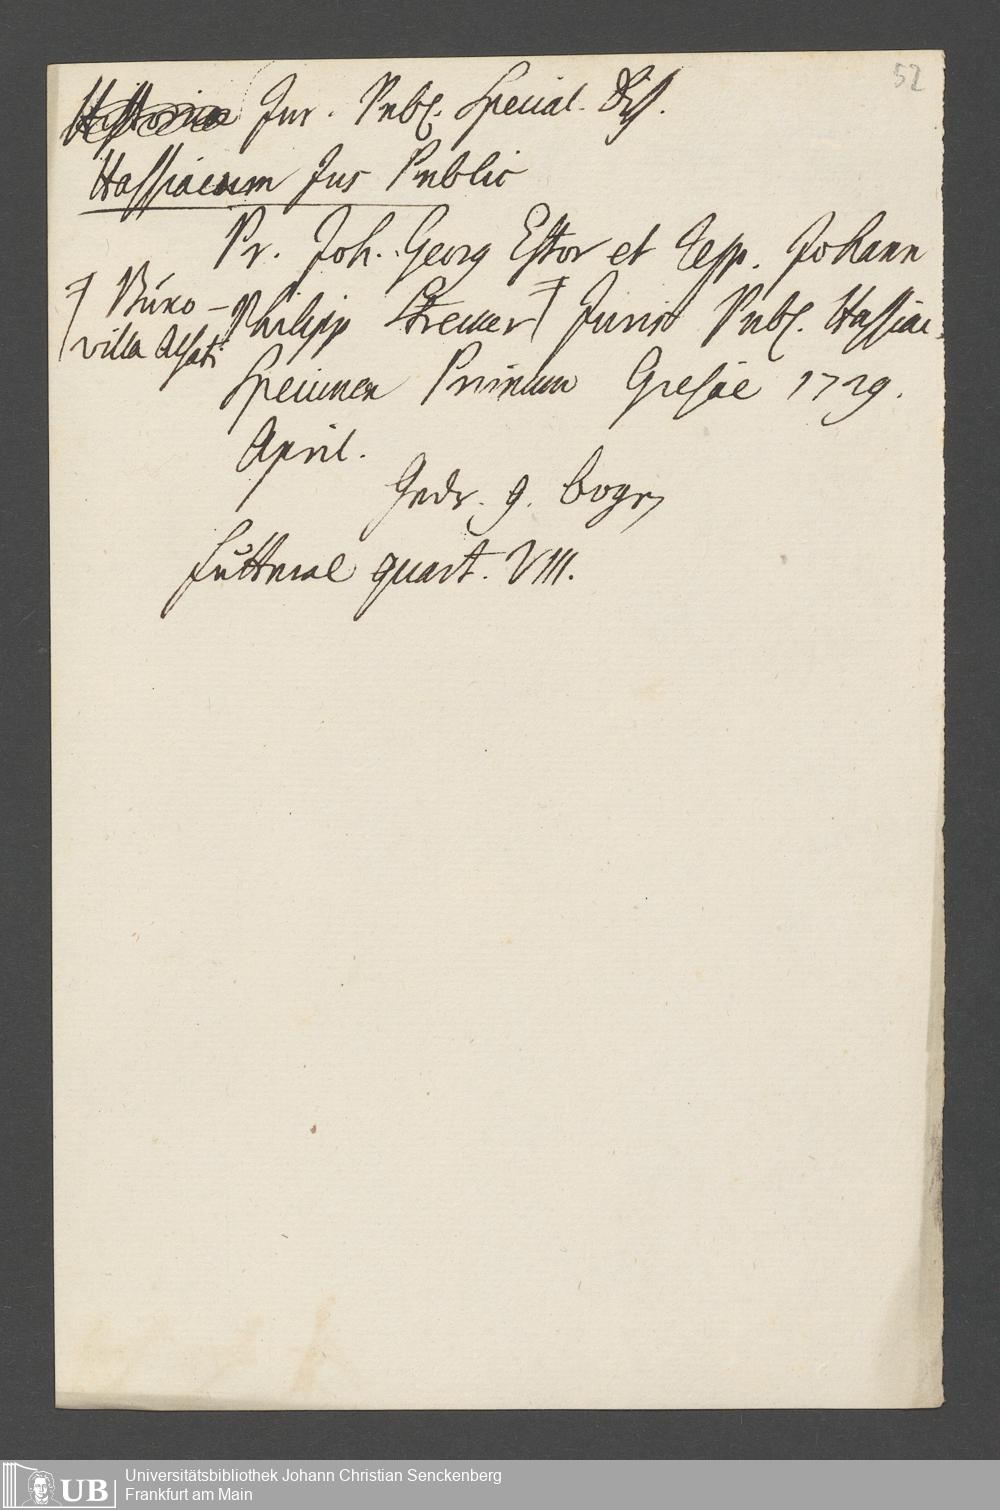 52
Historia Jur. Publ. Special. Diss.
Hassiacum Jus Public
Pr. Joh. Georg Estor et Resp. Johann
Philipp Strecker Juris Publ. Hassiac.
Buxo-
villa Alsati
Specimen Primum Giesae 1729.
April.
Gedr. 9. bogn
Futteral quart. VIII.
UB
Universitätsbibliothek Johann Christian Senckenberg
Frankfurt am Main